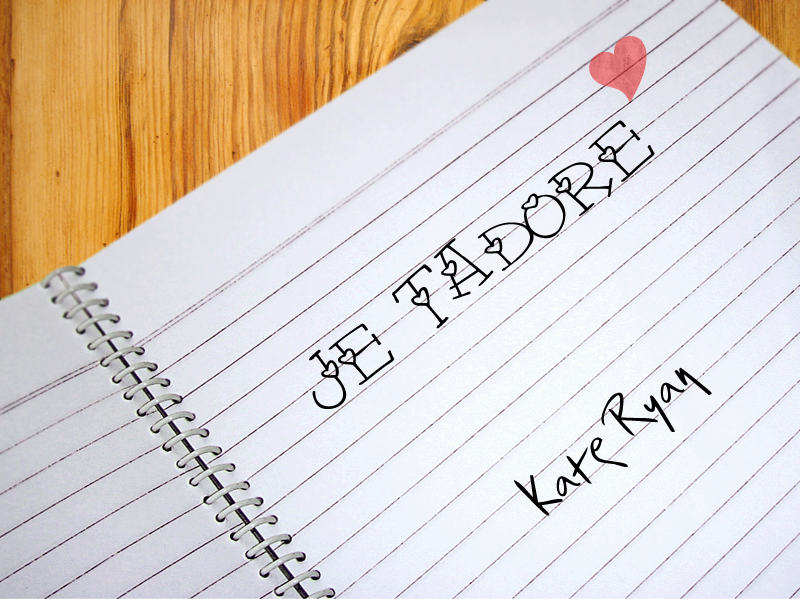 JE TADORE
Kate Ryan